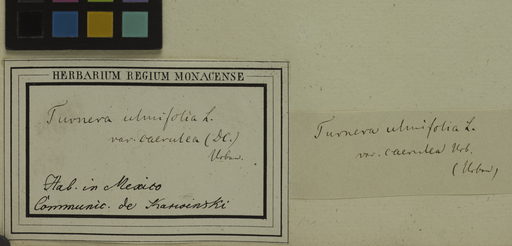 HERBARIUM REGIUM MONACENSE
Turnera ulmifolia L.
var. caerulea (DC.)
Urban.
Hab. in Mexico
Communic. de Karwinski
Turnera ulmifolia L.
var. caerulea Urb.
(Urban)